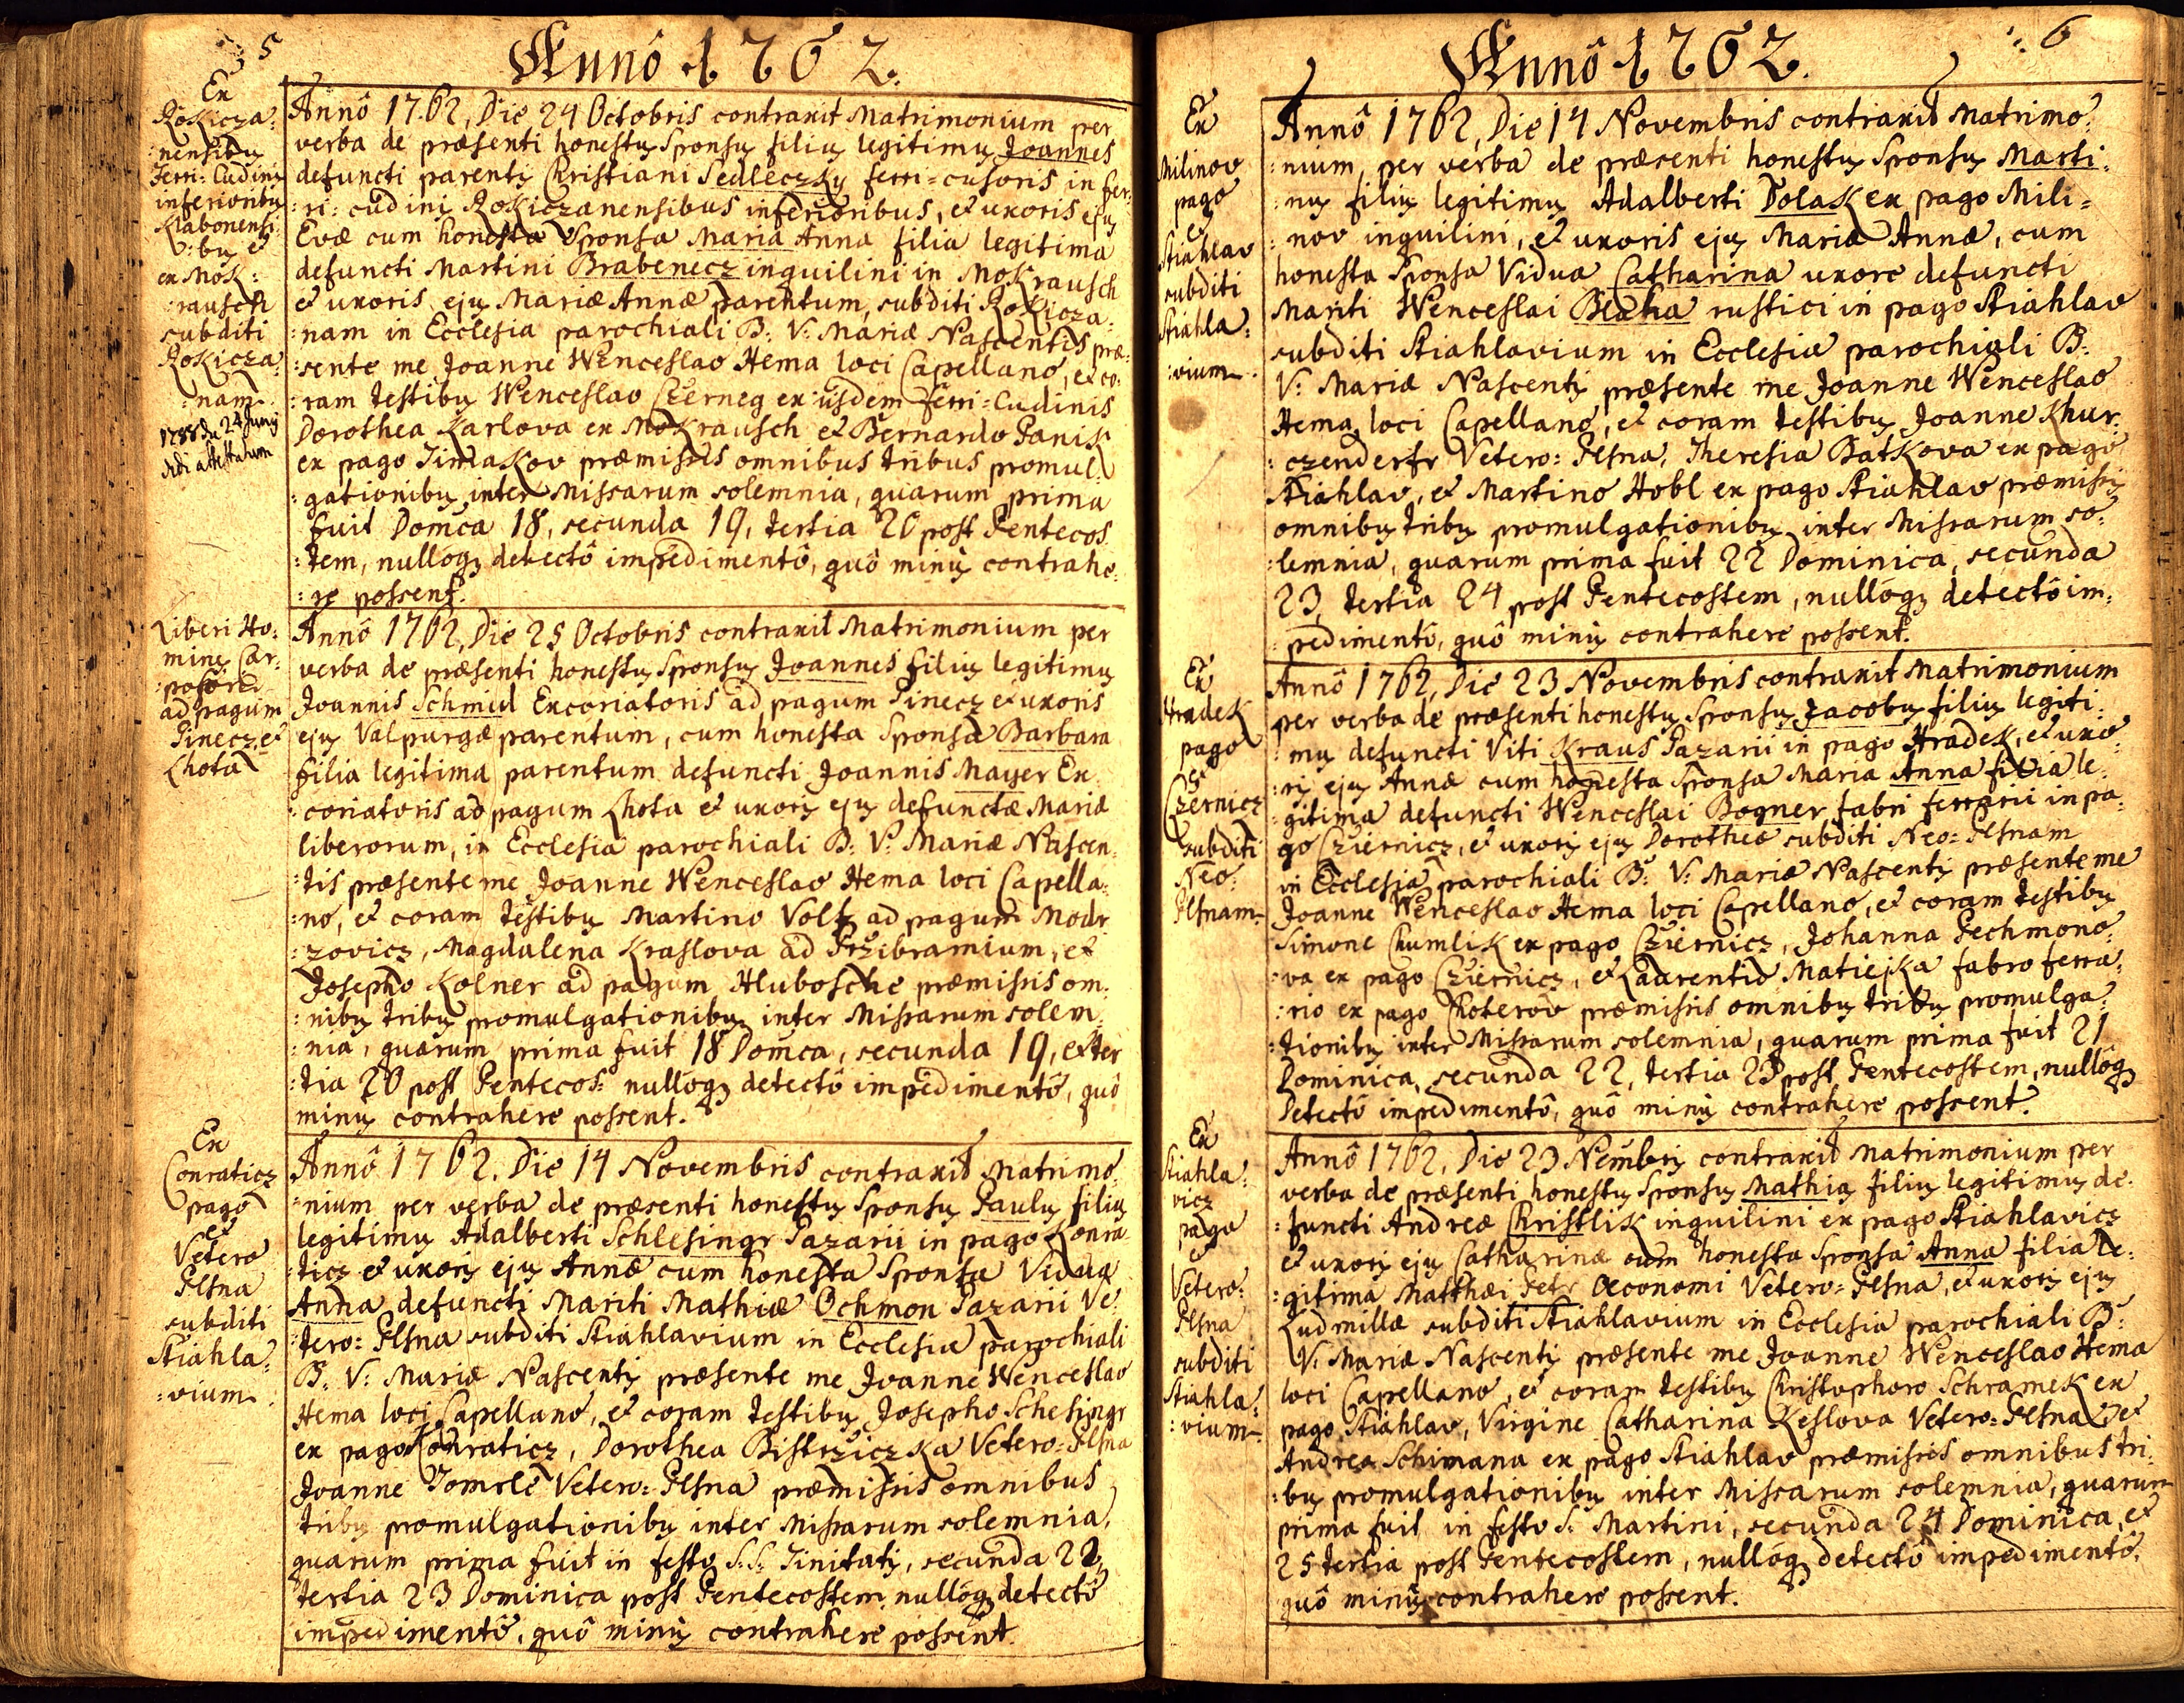 5
Annô 1762.
Ex
Rokicza=
:nensibus
Ferri=Cudinis
inferioribus
Klabonensi
:bus et
ex Mok:
:rausch
subditi
Rokicza
:nam.
1788 die 24 Junij
dedi attestatum
Annô 1762, Die 24 Octobris contraxit Matrimonium per
verba de præsenti honestus Sponsus filius legitimus Joannes
defuncti parentis Christiani Sedleczky ferri=cusoris in fer:
:ri=cudinis Rokiczanensibus inferioribus, et uxoris ejus
Evæ cum honesta Sponsa Maria Anna filia legitima
defuncti Martini Brabenecz inquilini in Mokrausch
et uxoris ejus Mariæ Annæ parentum, subditi Rokicza:
:nam in Ecclesia parochiali B: V: Mariæ Nascentis præ:
:sente me Joanne Wenceslao Hema loci Capellanô, et co:
:ram testibus Wenceslao Czerneg ex iisdem Ferri=Cudinis
Dorothea Karlova ex Mokrausch et Bernardo Panik
ex pago Timakov præmissis omnibus tribus promul:
:gationibus inter Missarum solemnia, quarum prima
fuit Domca 18, secunda 19, tertia 20 post Pentecos
:tem, nullôq3 detectô impedimentô, quô minùs contrahe:
:re possent.
Liberi Ho:
mines
ad pagum
Pinecz et
Lhota
Annô 1762, Die 25 Octobris contraxit Matrimonium per
verba de præsenti honestus Sponsus Joannes filius legitimus
Joannis Schmid Excoriatoris ad pagum Pinecz et uxoris
ejus Valpurgæ parentum, cum honesta Sponsa Barbara
filia legitima parentum defuncti Joannis Mayer Ex
:coriatoris ad pagum Lhota et uxoris ejus defunctæ Mariæ
liberorum, in Ecclesia parochiali B: V: Mariæ Nascen:
:tis præsente me Joanne Wenceslao Hema loci Capella:
:no, et coram testibus Martino Voltz ad pagum Modr
:zovicz, Magdalena Kraslova ad Przibramium, et
Josepho Kolner ad pagum Hlubosche præmissis om:
:nibus tribus promulgationibus inter Missarum solem:
:nia, quarum prima fuit 18 Domca, secunda 19, et ter
:tia 20 post Pentecos: nullôq3 detectô impedimentô, quô
minus contrahere possent.
Ex
Conraticz
pago
et
Vetero
Plsna
subditi
Stiahla:
:vium.
Annô 1762. Die 14 Novembris contraxit Matrimo:
:nium per verba de præsenti honestus Sponsus Paulus filius
legitimus Adalberti Schlesingr Pazarii in pago Konra
:ticz et uxoris ejus Annæ cum honesta Sponsa Vidua
Anna defuncti Mariti Mathiæ Ochmon Pazarii Ve:
:tero=Plsna subditi Stiahlavium in Ecclesia parochiali
B: V: Mariæ Nascentis præsente me Joanne Wenceslao
Hema loci Capellanô, et coram testibus Josepho Schesingr
ex pago Conraticz, Dorothea Bistrziczka Vetero=Plsna
Joanne Tomsle Vetero=Plsna præmissis omnibus
tribus promulgationibus inter Missarum solemnia,
quarum prima fuit in festo S:S: Tinitatis, secunda 22,
tertia 23 Dominica post Pentecostem nullôq3 detectô
impedimentô, quô minùs contrahere possent.
6
Annô 1762.
Ex
Milinov
pago
et
Stiahlav
subditi
Stiahla:
:vium.
Annô 1762, Die 14 Novembris contraxit Matrimo:
:nium, per verba de præsenti honestus Sponsus Marti:
:nus filius legitimus Adalberti Dolak ex pago Mili=
:nov inquilini, et uxoris ejus Mariæ Annæ, cum
honesta Sponsa Vidua Catharina uxore defuncti
Mariti Wenceslai Blaha rustici in pago Stiahlav
subditi Stiahlavium in Ecclesia parochiali B:
V: Mariæ Nascentis præsente me Joanne Wenceslao
Hema loci Capellanô, et coram testibus Joanne Khur
:czenderfr Vetero=Plsna, Theresia Batkova ex pago
Stiahlav, et Martino Hobl ex pago Stiahlav præmissis
omnibus tribus promulgationibus inter Missarum so:
:lemnia, quarum prima fuit 22 Dominica, secunda
23, tertia 24 post Pentecostem, nullôq3 detectô im:
:pedimentô, quô minùs contrahere possent.
Ex
Hradek
pago
et
Czernicz
subditi
Neo:
Plsnam.
Annô 1762, Die 23 Novembris contraxit Matrimonium
per verba de præsenti honestus Sponsus Jacobus filius legiti:
:mus defuncti Viti Kraus Pazarii in pago Hradek, et uxo:
:ris ejus Annæ cum honesta Sponsa Maria Anna filia le:
:gitima defuncti Wenceslai Bogner fabri ferrarii in pa:
go Cziernicz, et uxoris ejus Dorotheæ subditi Neo=Plsnam
in Ecclesia parochiali B: V: Mariæ Nascentis præsente me
Joanne Wenceslao Hema loci Capellanô, et coram testibus
Simone Chumlik ex pago Cziernicz, Johanna Pechmono:
:va ex pago Cziernicz, et Laurentio Matiejka fabro ferra:
:rio ex pago Choterov præmissis omnibus tribus promulga:
:tionibus inter Missarum solemnia, quarum prima fuit 21
Dominica, secunda 22, tertia 23 post Pentecostem, nullôq3
Detectô impedimentô, quô minùs contrahere possent.
Ex
Stiahla:
vicz
pago
et
Vetero:
Plsna
subditi
Stiahla:
:vium.
Annô 1762, Die 23 Nembris contraxit Matrimonium per
verba de præsenti honestus Sponsus Mathias filius legitimus de:
:functi Andreæ Christlik inquilini ex pago Stiahlavicz
et uxoris ejus Catharinæ cum honesta Sponsa Anna filia le:
:gitima Matthæi Petr Œconomi Vetero=Plsna, et uxoris ejus
Ludmillæ subditi Stiahlavium in Ecclesia parochiali B:
V: Mariæ Nascentis præsente me Joanne Wenceslao Hema
loci Capellano, et coram testibus Christophoro Schramek ex
pago Stiahlav, Virgine Catharina Keslova Vetero=Plsna et
Andrea Schimana ex pago Stiahlav præmissis omnibus tri:
:bus promulgationibus inter Missarum solemnia, quarum
prima fuit in festo S. Martini, secunda 24 Dominica, et
25 tertia post Pentecostem, nullôq3 detectô impedimentô,
quô minùs contrahere possent.